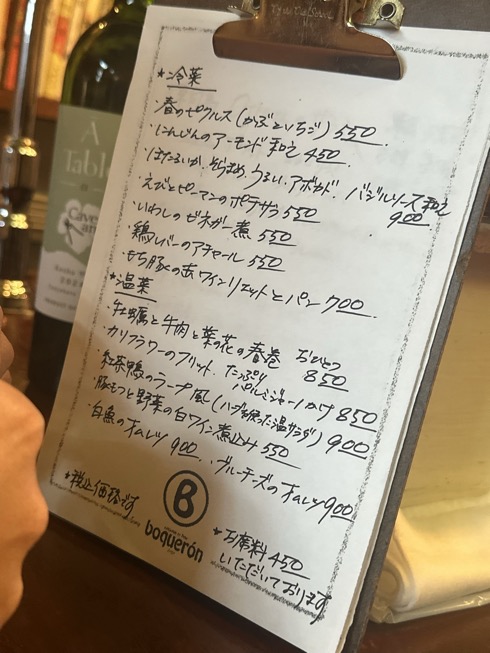 A
Table
Cave
* 冷菜
・春のピクルス(かぶといちご) 550
・にんじんのアーモンド和え 450
・ほたるいか、そらまめ、うるい、アボカド、バジルソース和え 900
・えびとピーマンのポテサラ 550
・いわしのビネガー煮 550
・鶏レバーのアチャール 550
・もち豚の赤ワインリエットとパン 700
* 温菜
・牡蠣と牛肉と菜の花の春巻 おひとつ 850
・カリフラワーのフリット たっぷりパルミジャーノかけ 850
・紅茶鴨のラープ風(ハーブを使った温サラダ) 900
・豚モツと野菜の白ワイン煮込み 550
・白魚のオムレツ 900 ・ブルーチーズのオムレツ 900
*税込価格です
B
boquerón
*お席料 450
いただいております